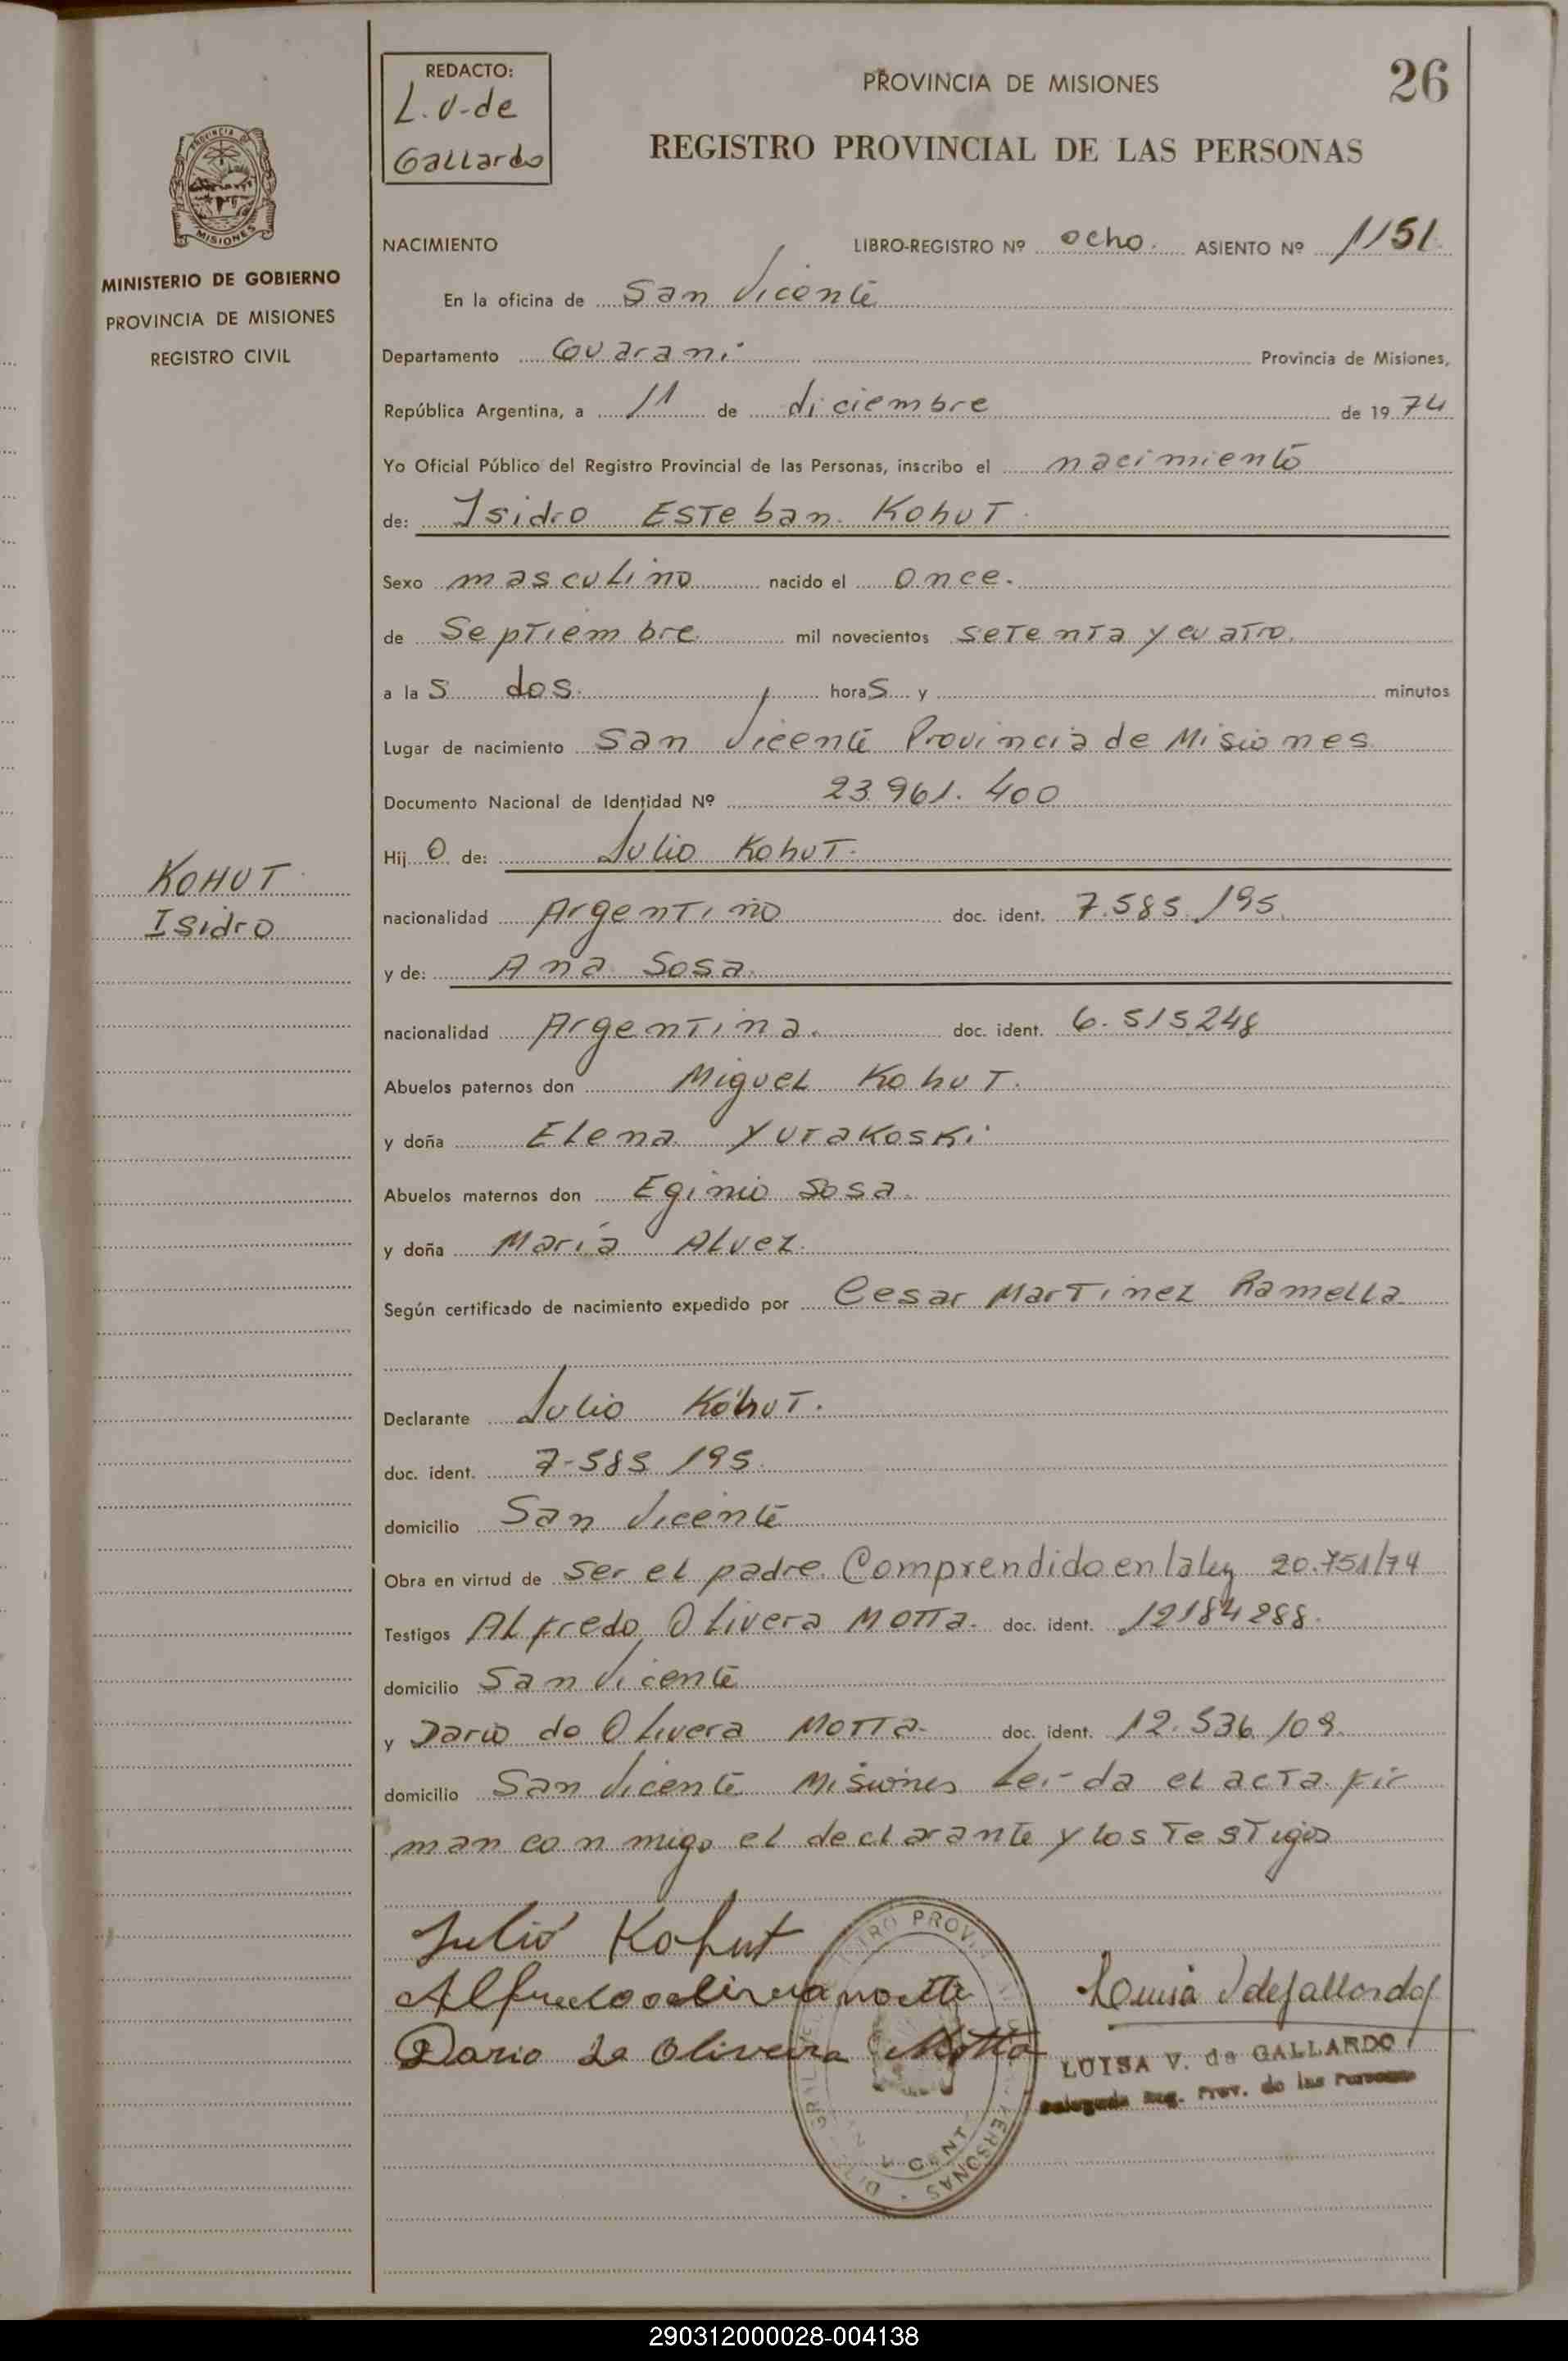 REDACTO:
L. V. de
Gallardo
PROVINCIA DE MISIONES
26
REGISTRO PROVINCIAL DE LAS PERSONAS
MISIONES
MINISTERIO DE GOBIERNO
PROVINCIA DE MISIONES
REGISTRO CIVIL
NACIMIENTO LIBRO-REGISTRO Nº ocho. ASIENTO Nº 1151.
En la oficina de San Vicente
Departamento Guarani Provincia de Misiones,
República Argentina, a 11 de diciembre de 1974
Yo Oficial Público del Registro Provincial de las Personas, inscribo el nacimiento
de: Isidro Esteban. Kohut.
Sexo masculino nacido el once.
de Septiembre. mil novecientos setenta y cuatro.
a las dos. horas y minutos
Lugar de nacimiento San Vicente Provincia de Misiones
Documento Nacional de Identidad Nº 23.961.400
Hijo de: Julio Kohut.
KOHUT
Isidro
nacionalidad Argentino doc. ident. 7.585.195.
y de: Ana Sosa.
nacionalidad Argentina. doc. ident. 6.515248
Abuelos paternos don Miguel Kohut.
y doña Elena Yurakoski
Abuelos maternos don Eginio Sosa.
y doña María Alvez.
Según certificado de nacimiento expedido por Cesar Martinez Ramella
Declarante Julio Kohut.
doc. ident. 7-585 195.
domicilio San Vicente
Obra en virtud de ser el padre. Comprendido en la ley 20.751/74
Testigos Alfredo Olivera Motta. doc. ident. 12184288.
domicilio San Vicente
y Dario de Olivera Motta- doc. ident. 12.536.109.
domicilio San Vicente Misiones Lei-da el acta fir
man conmigo el declarante y los testigos
Julio Kohut
Alfredo oolivera motta
Dario de Oliveira Motta
Luisa V de Gallardo
LUISA V. de GALLARDO
Delegada Reg. Prov. de las Personas
290312000028-004138